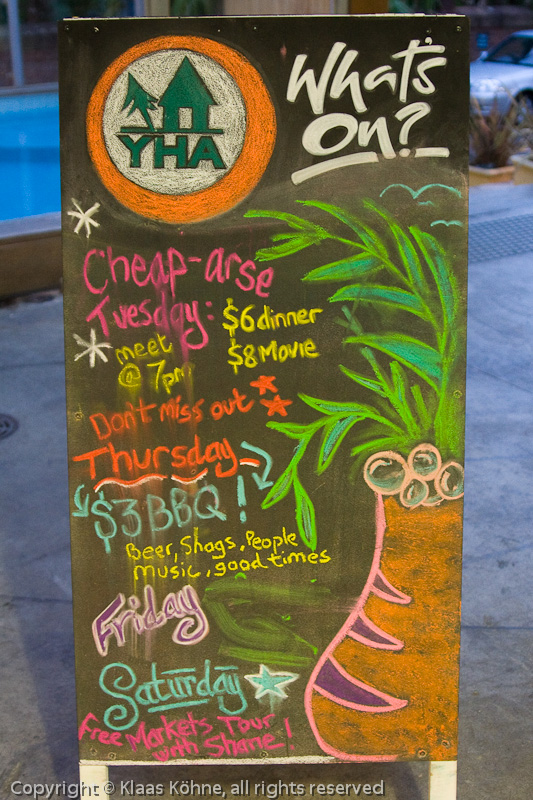 YHA
What's
On?
Cheap-arse
Tuesday:
$6 dinner
$8 Movie
meet
@ 7pm
Don't miss out
Thursday
$3 BBQ!
Beer, Shags, People
music, good times
Friday
Saturday
Free Markets Tour
with Shane!
Copyright © Klaas Köhne, all rights reserved